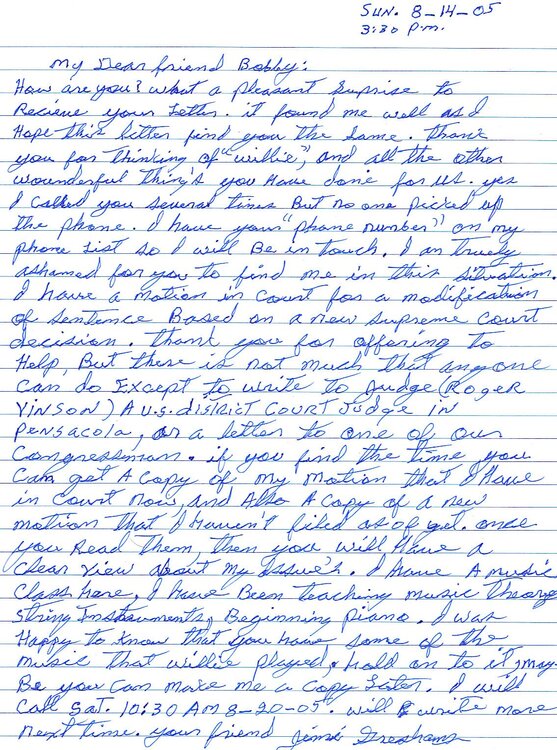 SUN. 8-14-05
3:30 P.m.
my Dear friend Bobby:
How are you? what a pleasant Surprise to
Recieve your Letter. it found me well as I
Hope this letter find you the same. Thank
you for thinking of "willie", and all the other
wounderful thing's you Have done for us. yes
I called you several times But no one picked up
the phone. I have your "phone number" on my
phone List so I will Be in touch. I am truely
ashamed for you to find me in this situation.
I have a motion in Court for a modification
of sentence Based on a new Supreme Court
decision. Thank you for offering to
Help, But there is not much that anyone
Can do Except to write to Judge (ROGER
VINSON) A U.S. district COURT Judge in
PENSACOLA, or a letter to one of our
Congressman. if you find the time, you
Can get A Copy of my motion that I Have
in Court now, and Also A Copy of a new
motion that I Haven't filed as of yet. once
you Read them, then you will Have a
Clear view about my Issue's. I have A music
Class here, I have Been teaching music theory
string Instruments, Beginning piano. I was
Happy to know that you have some of the
music that willie played, hold on to it, may
Be you Can make me a Copy Later. I will
Call Sat. 10:30 AM 8-20-05. will write more
next time. your friend Jimi Greshams